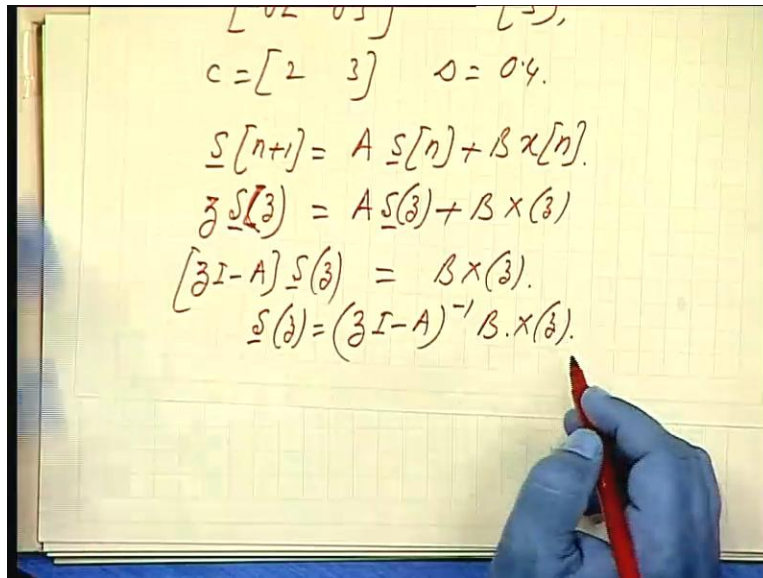 C = [2 3] D = 0.4.
S[n+1] = A S[n] + B x[n].
z S(z) = A S(z) + B X(z)
[zI - A] S(z) = B X(z).
S(z) = (zI - A)⁻¹ B. X(z).